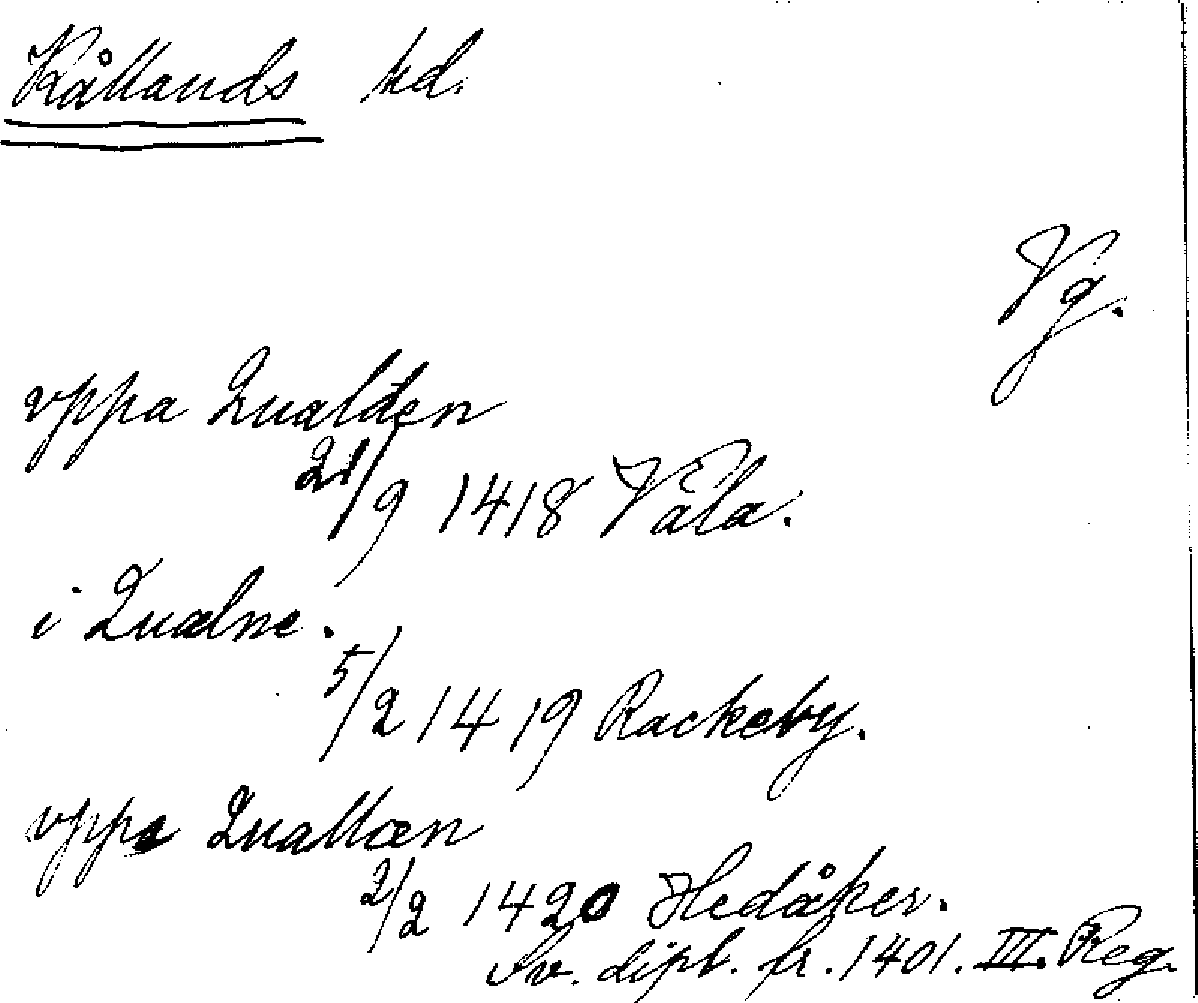 Kållands hd.
Vg.
vppa Qualden
21/9 1418 Vala.
i Qualne.
5/2 1419 Rackeby.
vppa Quallæn
2/2 1420 Hedåker.
Sv. dipl. fr. 1401. III. Reg.